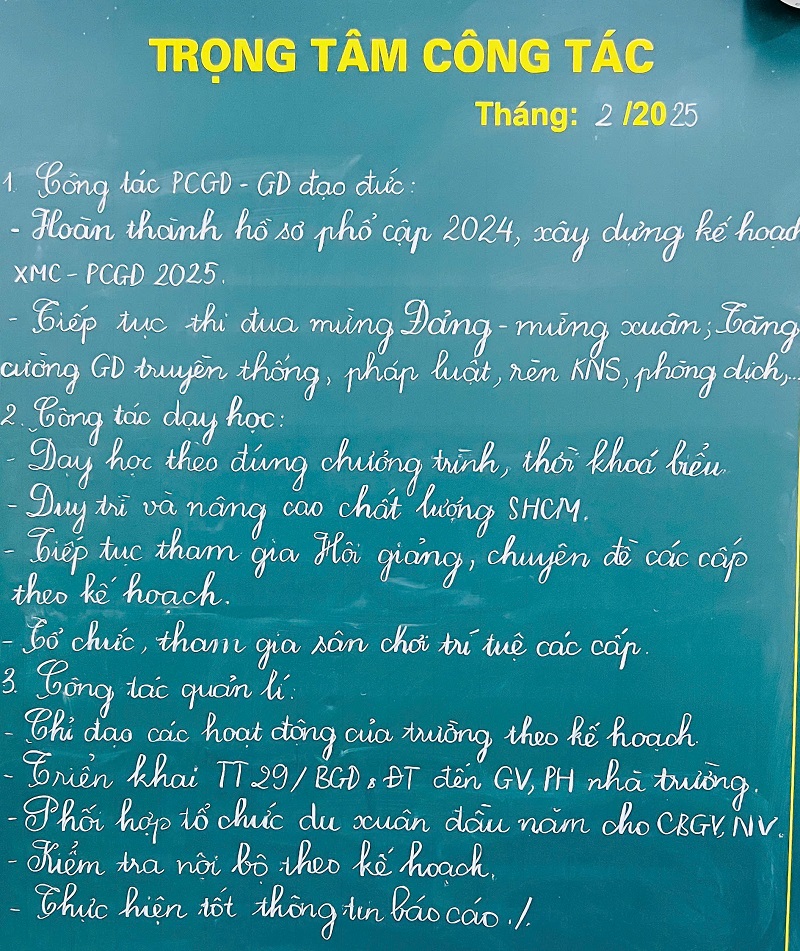 TRỌNG TÂM CÔNG TÁC
Tháng: 2 /2025
1. Công tác PCGD - GD đạo đức:
- Hoàn thành hồ sơ phổ cập 2024, xây dựng kế hoạch
XMC - PCGD 2025.
- Tiếp tục thi đua mừng Đảng - mừng xuân; Tăng
cường GD truyền thống, pháp luật, rèn KNS, phòng dịch,...
2. Công tác dạy học:
- Dạy học theo đúng chương trình, thời khoá biểu.
- Duy trì và nâng cao chất lượng SHCM.
- Tiếp tục tham gia Hội giảng, chuyên đề các cấp
theo kế hoạch.
- Tổ chức, tham gia sân chơi trí tuệ các cấp.
3. Công tác quản lí:
- Chỉ đạo các hoạt động của trường theo kế hoạch.
- Triển khai TT 29/ BGD & ĐT đến GV, PH nhà trường.
- Phối hợp tổ chức du xuân đầu năm cho CBGV, NV.
- Kiểm tra nội bộ theo kế hoạch.
- Thực hiện tốt thông tin báo cáo ./.